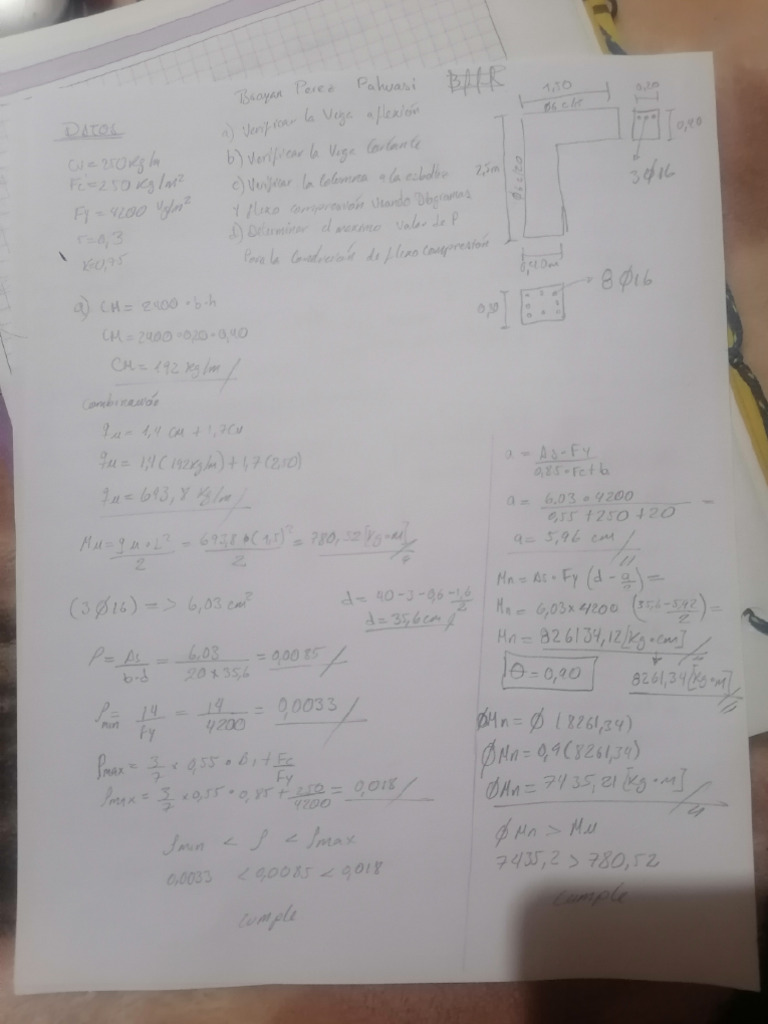 DATOS
CV = 250 kg/m
Fc = 250 kg/m²
Fy = 4200 kg/m²
r = 0,3
K = 0,75
a) Verificar la Viga a flexión
b) Verificar la Viga Cortante
c) Verificar la Columna a la esbeltez
y flexo compresión Usando Diagramas
d) Determinar el maximo valor de P
Para la Combinación de flexo compresión
1,50
Ø6 c/15
0,20
0,40
3Ø16
0,40m
0,30
8Ø16
a) CM = 2400 * b * h
CM = 2400 * 0,20 * 0,40
CM = 192 kg/m
Combinación
qu = 1,4 CM + 1,7 CV
qu = 1,4 (192 kg/m) + 1,7 (250)
qu = 693,8 kg/m
Mu = qu * L² / 2 = 693,8 * (1,5)² / 2 = 780,52 [kg*m]
(3Ø16) => 6,03 cm²
d = 40 - 3 - 0,6 - 1,6/2
d = 35,6 cm
ρ = As / b*d = 6,03 / 20 x 35,6 = 0,0085
ρmin = 14 / Fy = 14 / 4200 = 0,0033
ρmax = 3/7 * 0,85 * β1 * Fc/Fy
ρmax = 3/7 * 0,85 * 0,85 * 250/4200 = 0,018
ρmin < ρ < ρmax
0,0033 < 0,0085 < 0,018
cumple
a = As * Fy / 0,85 * Fc * b
a = 6,03 * 4200 / 0,85 * 250 * 20 =
a = 5,96 cm
Mn = As * Fy (d - a/2) =
Mn = 6,03 x 4200 (35,6 - 5,92/2) =
Mn = 826134,12 [kg*cm]
Ø = 0,90
8261,34 [kg*m]
ØMn = Ø (8261,34)
ØMn = 0,9 (8261,34)
ØMn = 7435,21 [kg*m]
ØMn > Mu
7435,2 > 780,52
cumple